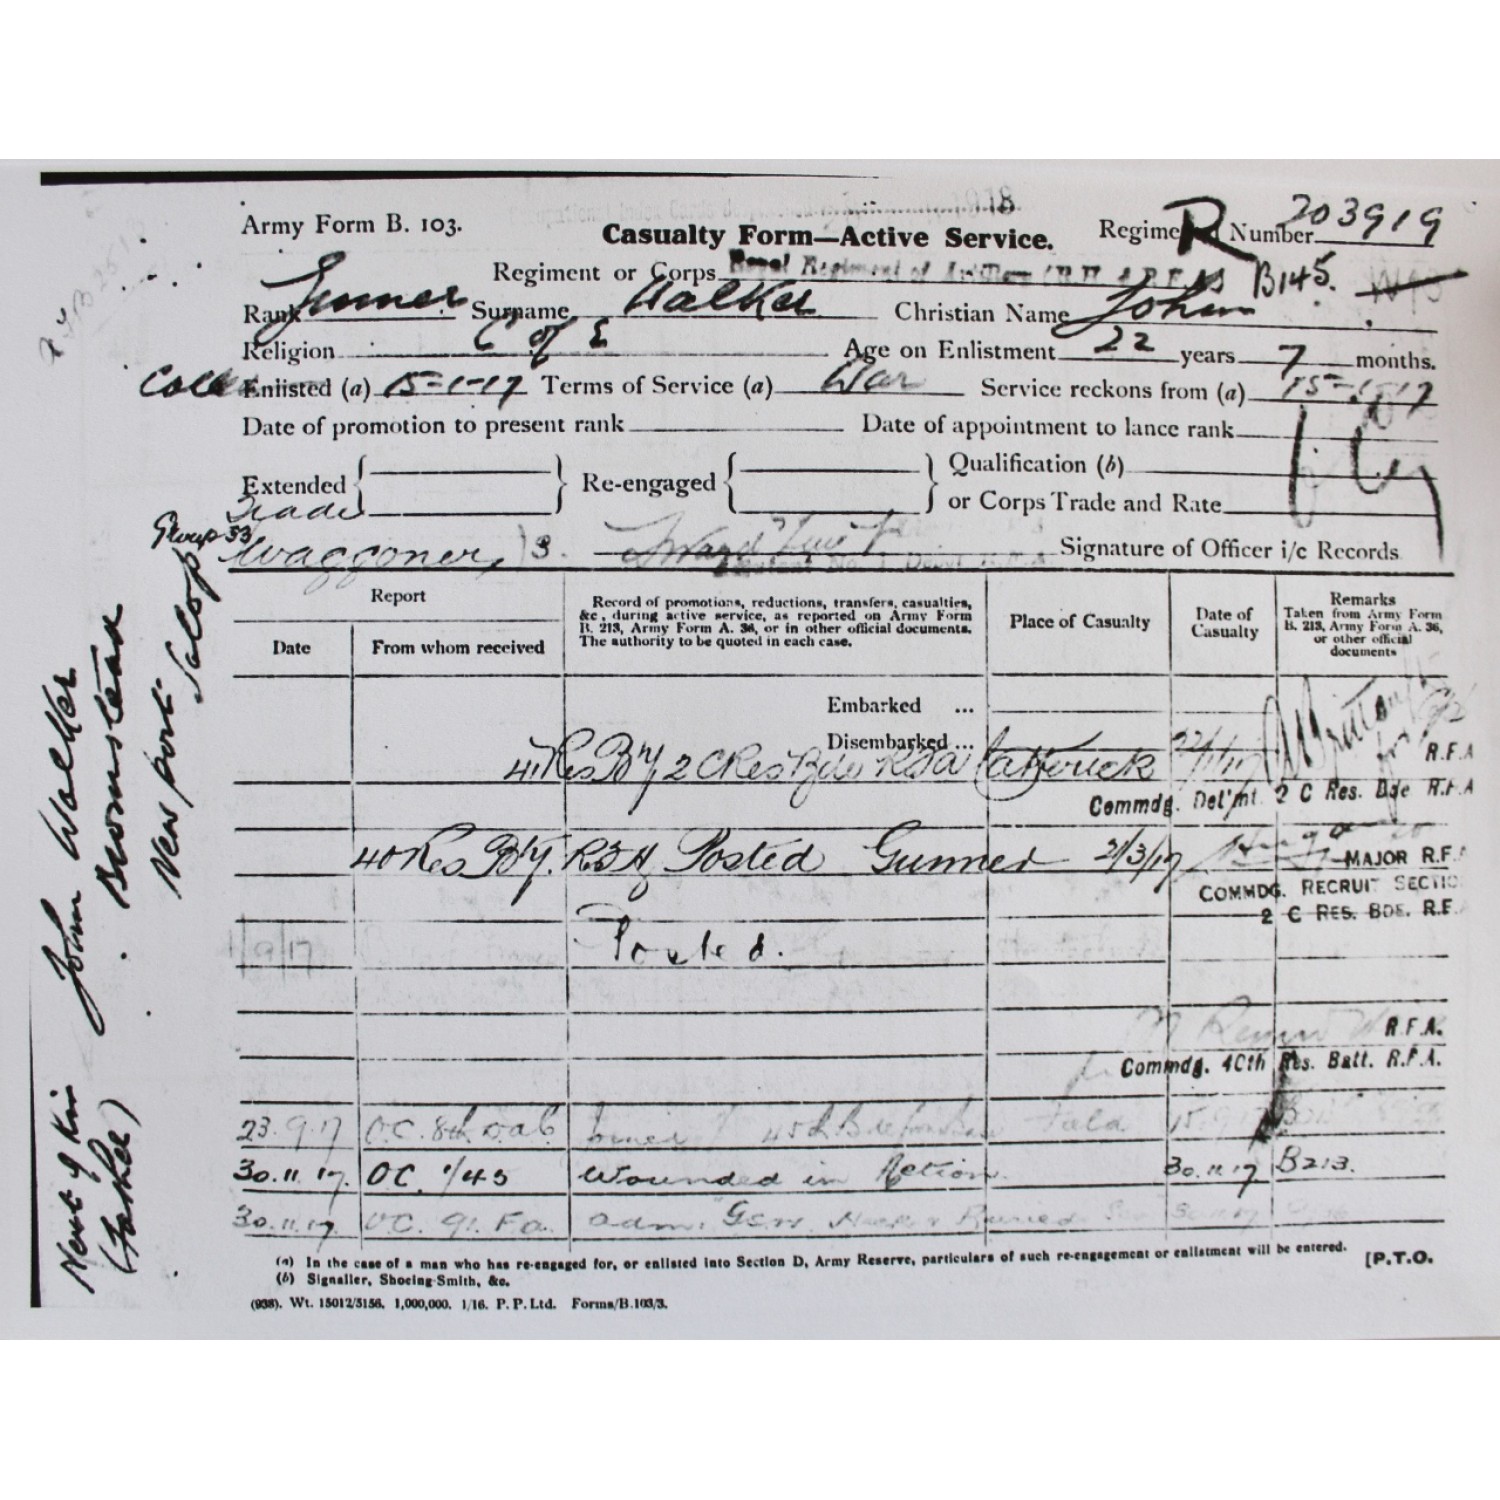 1918
Army Form B. 103.
Casualty Form—Active Service.
Regime R Number 203919
Regiment or Corps Royal Regiment of Artillery B145.
Rank Gunner Surname Walker Christian Name John
Religion C of E Age on Enlistment 22 years 7 months.
Enlisted (a) 15-1-17 Terms of Service (a) War Service reckons from (a) 15-1-17
Date of promotion to present rank Date of appointment to lance rank
Extended Re-engaged Qualification (b)
or Corps Trade and Rate
Trade
Group 33
Waggoner, 3. Signature of Officer i/c Records
Report
Date
From whom received
Record of promotions, reductions, transfers, casualties,
&c, during active service, as reported on Army Form
B. 213, Army Form A. 36, or in other official documents.
The authority to be quoted in each case.
Place of Casualty
Date of
Casualty
Remarks
Taken from Army Form
B. 213, Army Form A. 36,
or other official
documents
Embarked ...
Disembarked ...
R.F.A
41 Res By 2 C Res Bde RFA Catterick
Commdg. Det'mt. 2 C Res. Bde R.F.A
40 Res By. RFA Posted Gunner 21/3/17
MAJOR R.F.
COMMDG. RECRUIT SECTIO
2 C RES. BDE. R.F.
1/9/17 Posted.
R.F.A.
Commdg. 40th Res. Batt. R.F.A.
23.9.17 O.C. Joined 45th Field 15.9.17
30.11.17. OC. 1/45 Wounded in Action. 30.11.17 B213.
30.11.17. O.C. 91. F.a. adm.
(a) In the case of a man who has re-engaged for, or enlisted into Section D, Army Reserve, particulars of such re-engagement or enlistment will be entered. [P.T.O.
(b) Signaller, Shoeing-Smith, &c.
(938). Wt. 15012/5156. 1,000,000. 1/16. P. P. Ltd. Forms/B.103/3.
Next of Kin John Walker
(Father)
Newport Salop